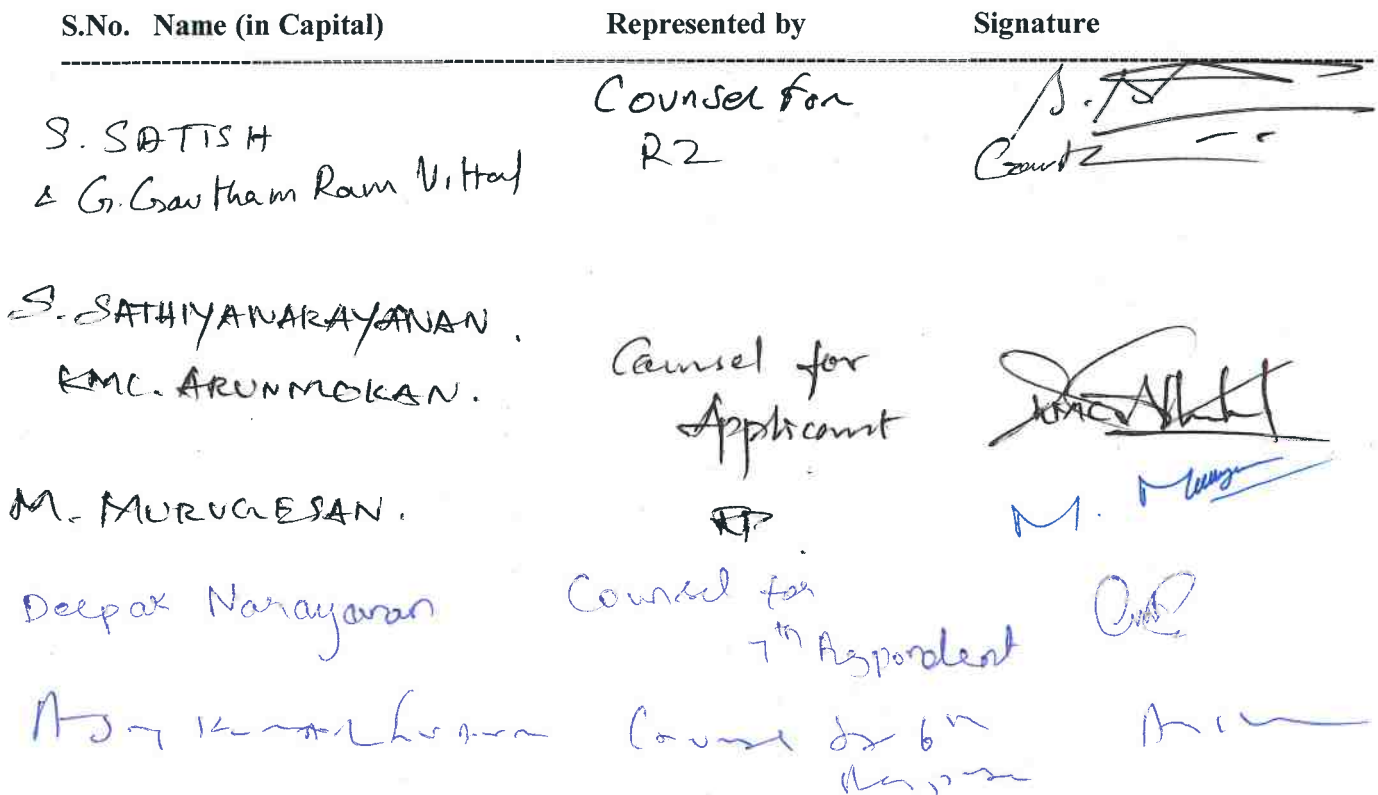 S.No. Name (in Capital) Represented by Signature
S. SATISH Counsel for
& G. Gautham Ram Vittal R2
S. SATHIYANARAYANAN.
KMC. ARUNMOKAN. Counsel for
Applicant
KMC
M. MURUGESAN. RP. M.
Deepak Narayanan Counsel for
7th Respondent
Ajay Kumar Counsel for 6th